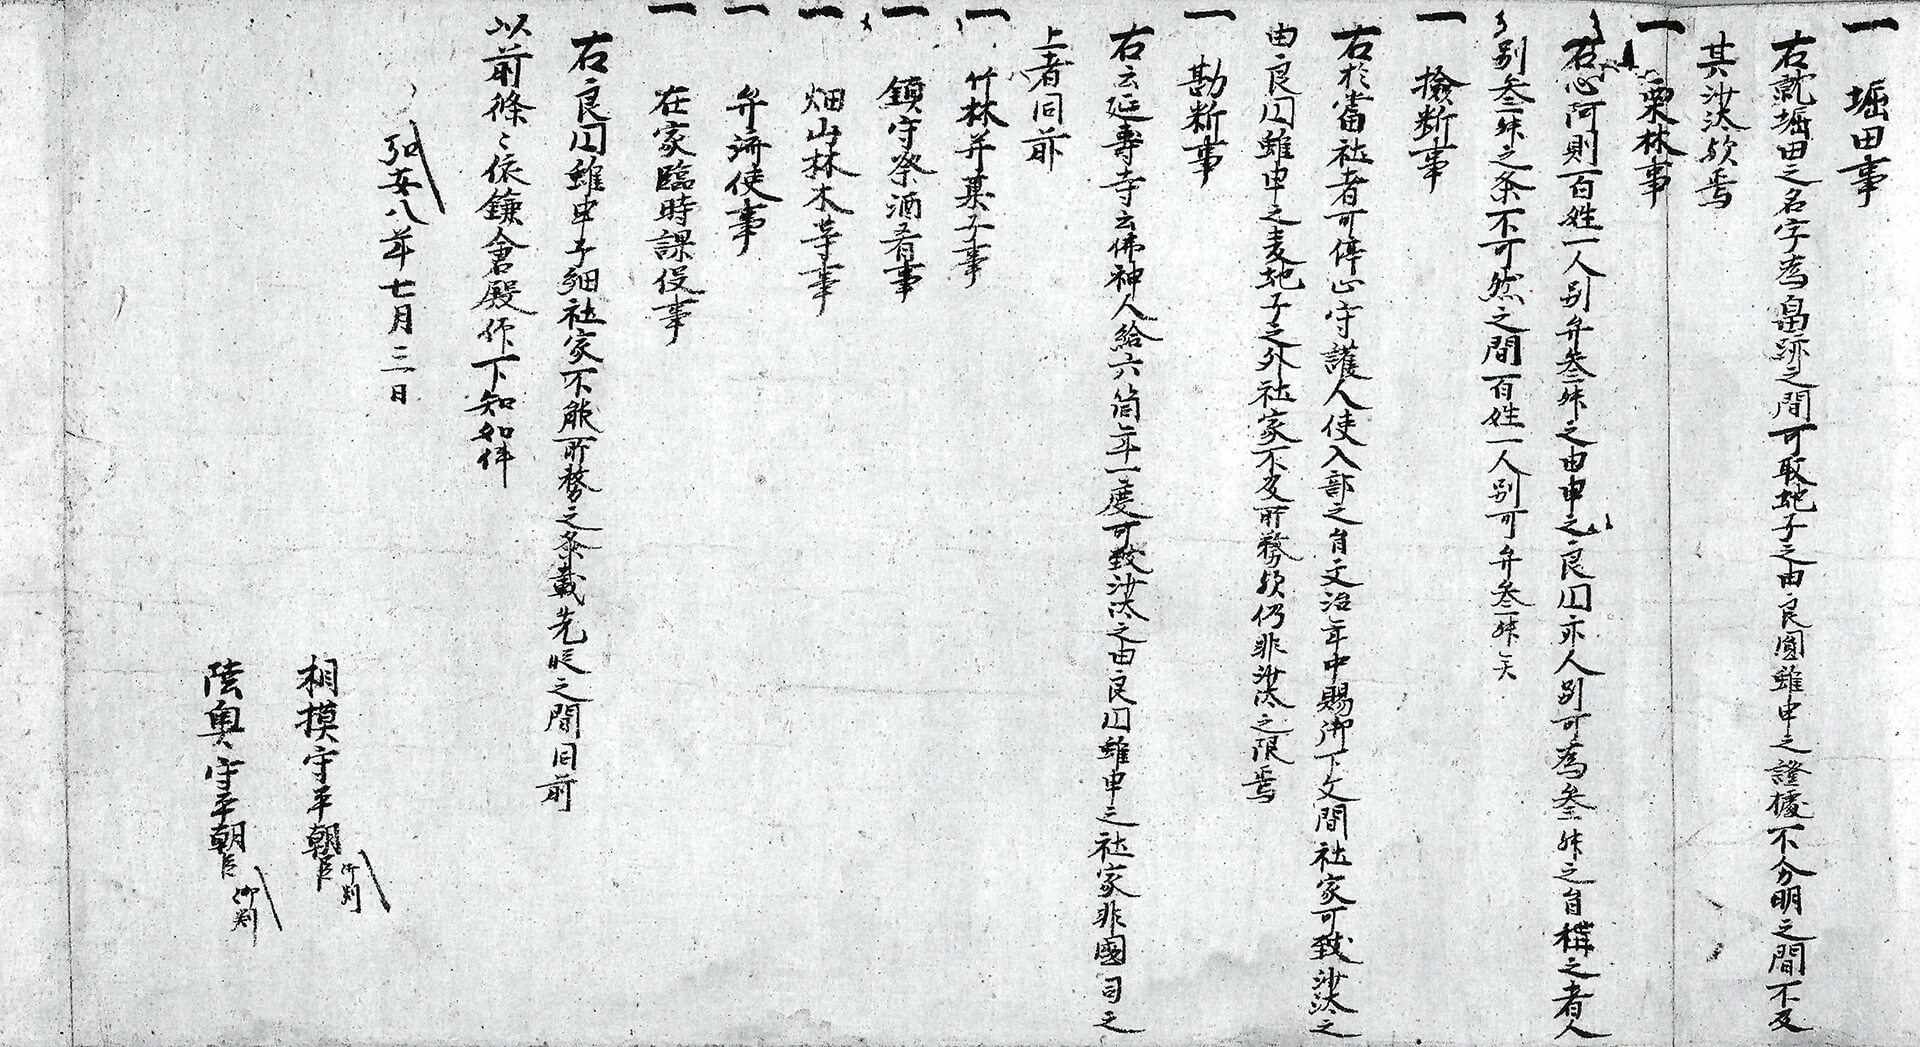 一 堀田事
右就堀田之名字為畠跡之間可取地子之由良圓雖申之證據不分明之間不及
其沙汰欤焉
一 栗林事
右心阿則百姓一人別弁叁升之由申之良囙亦人別可為叁升之自構之者人
別叁升之条不可然之間百姓一人別可弁叁升矣
一 撿断事
右於當社者可停止守護人使入部之旨文治年中賜御下文間社家可致沙汰之
由良囙雖申之麦地子之外社家不及所務欤仍非沙汰之限焉
一 勘断事
右云延壽寺云佛神人給六箇年一度可致沙汰之由良囙雖申之社家非國司之
上者同前
一 竹林并菓子事
一 鎮守祭酒肴事
一 畑山林木等事
一 弁済使事
一 在家臨時課役事
右良囙雖申子細社家不能所務之条載先段之間同前
以前條々依鎌倉殿仰下知如件
弘安八年七月三日
相摸守平朝臣 御判
陸奥守平朝臣 御判